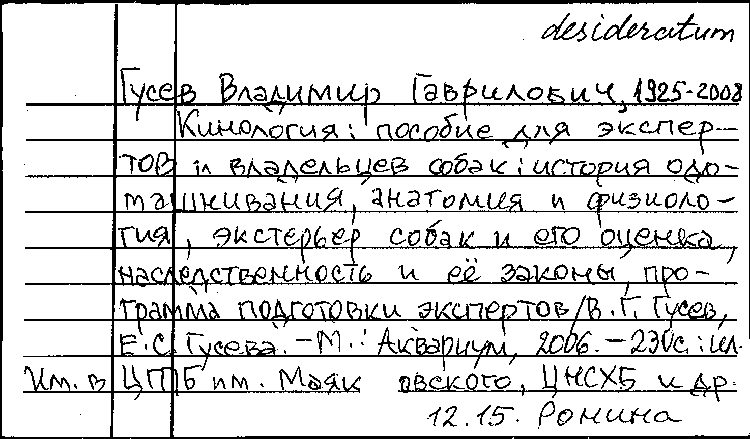 desideratum
Гусев Владимир Гаврилович, 1925-2008
Кинология: пособие для экспер-
тов и владельцев собак: история одо-
машнивания, анатомия и физиоло-
гия, экстерьер собак и его оценка,
наследственность и её законы, про-
грамма подготовки экспертов/В.Г. Гусев,
Е.С. Гусева. - М.: Аквариум, 2006. - 230с.: ил.
Им. в ЦГПБ им. Маяковского, ЦНСХБ и др.
12.15. Ронина